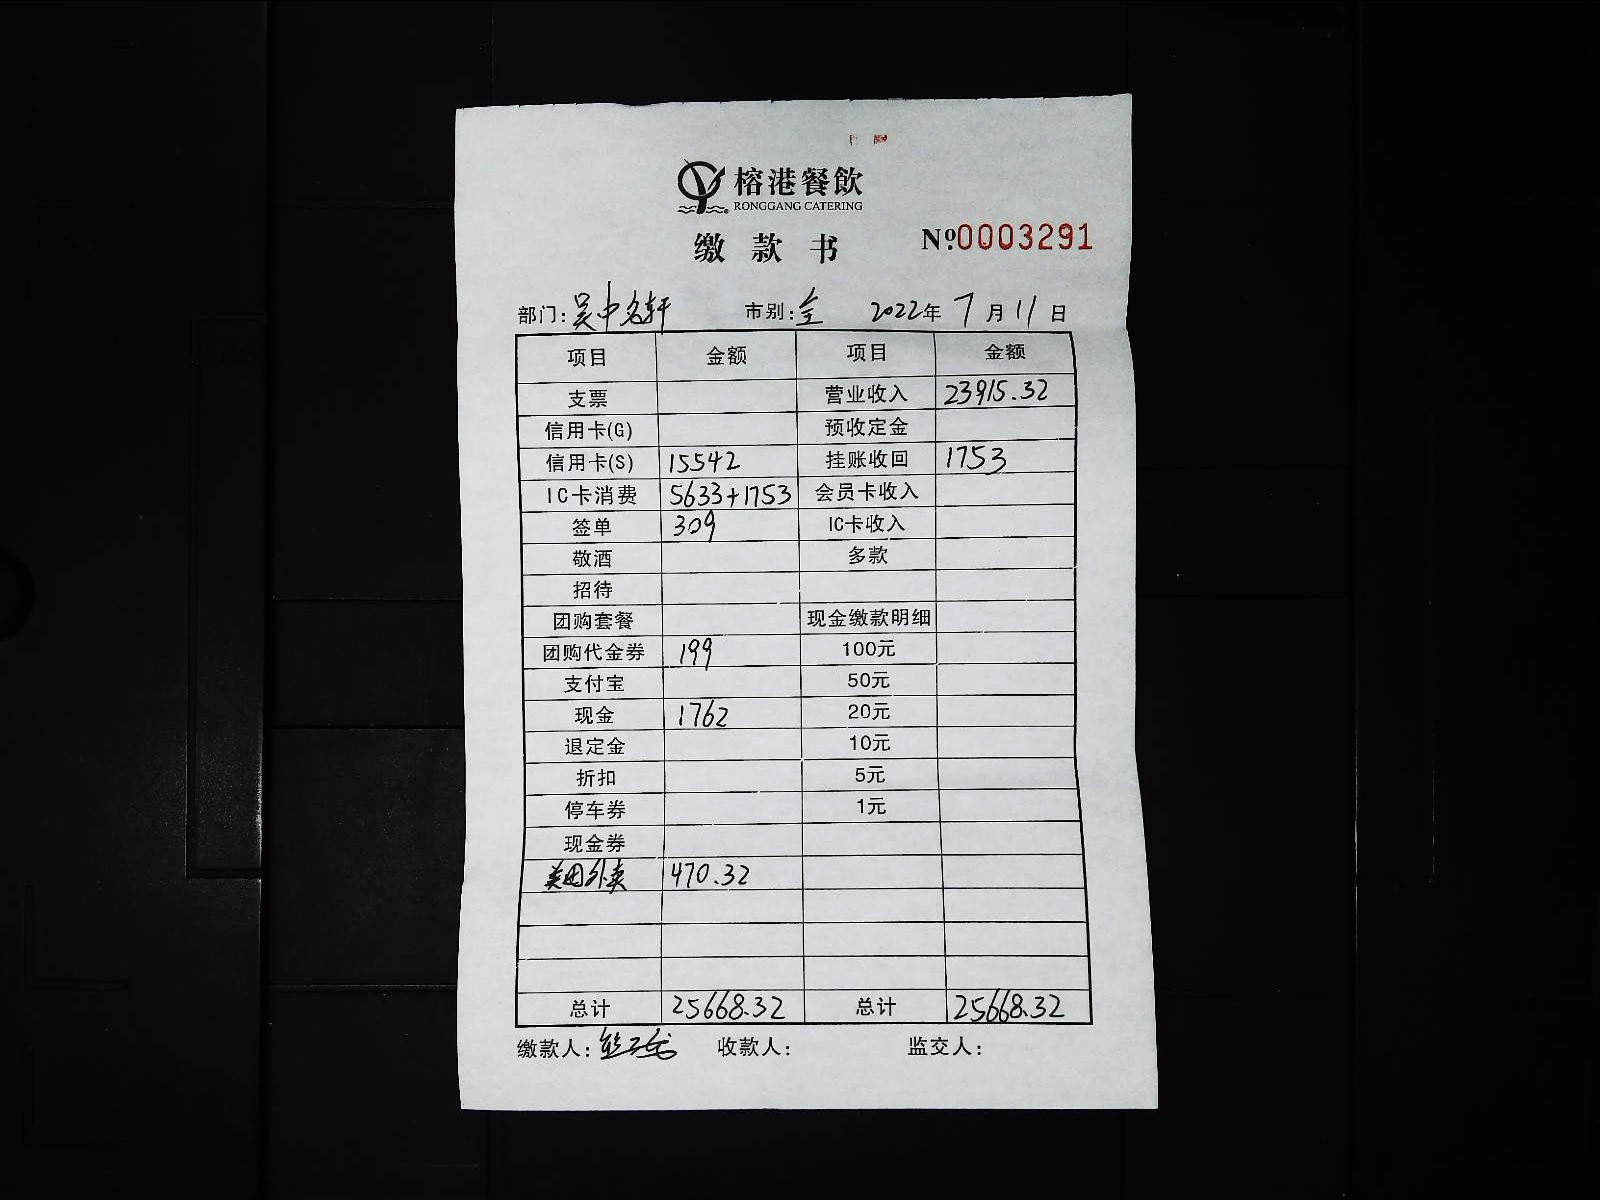 榕港餐飲
RONGGANG CATERING
缴款书 №0003291
部门: 吴中名轩 市别: 全 2022年 7月 11日
项目 金额 项目 金额
支票 营业收入 23915.32
信用卡(G) 预收定金
信用卡(S) 15542 挂账收回 1753
IC卡消费 5633+1753 会员卡收入
签单 309 IC卡收入
敬酒 多款
招待
团购套餐 现金缴款明细
团购代金券 199 100元
支付宝 50元
现金 1762 20元
退定金 10元
折扣 5元
停车券 1元
现金券
美团外卖 470.32
总计 25668.32 总计 25668.32
缴款人: 收款人: 监交人: